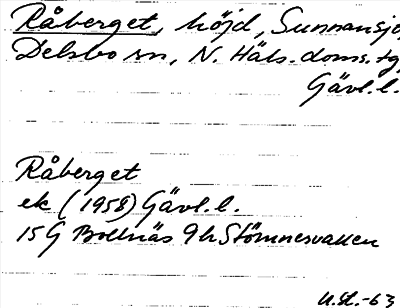 Råberget, höjd, Sunnansjö,
Delsbo sn, N. Häls. doms. tg,
Gävl. l.
Råberget
ek (1958) Gävl. l.
15G Bollnäs 9h Stömnesvallen
U.St.-63